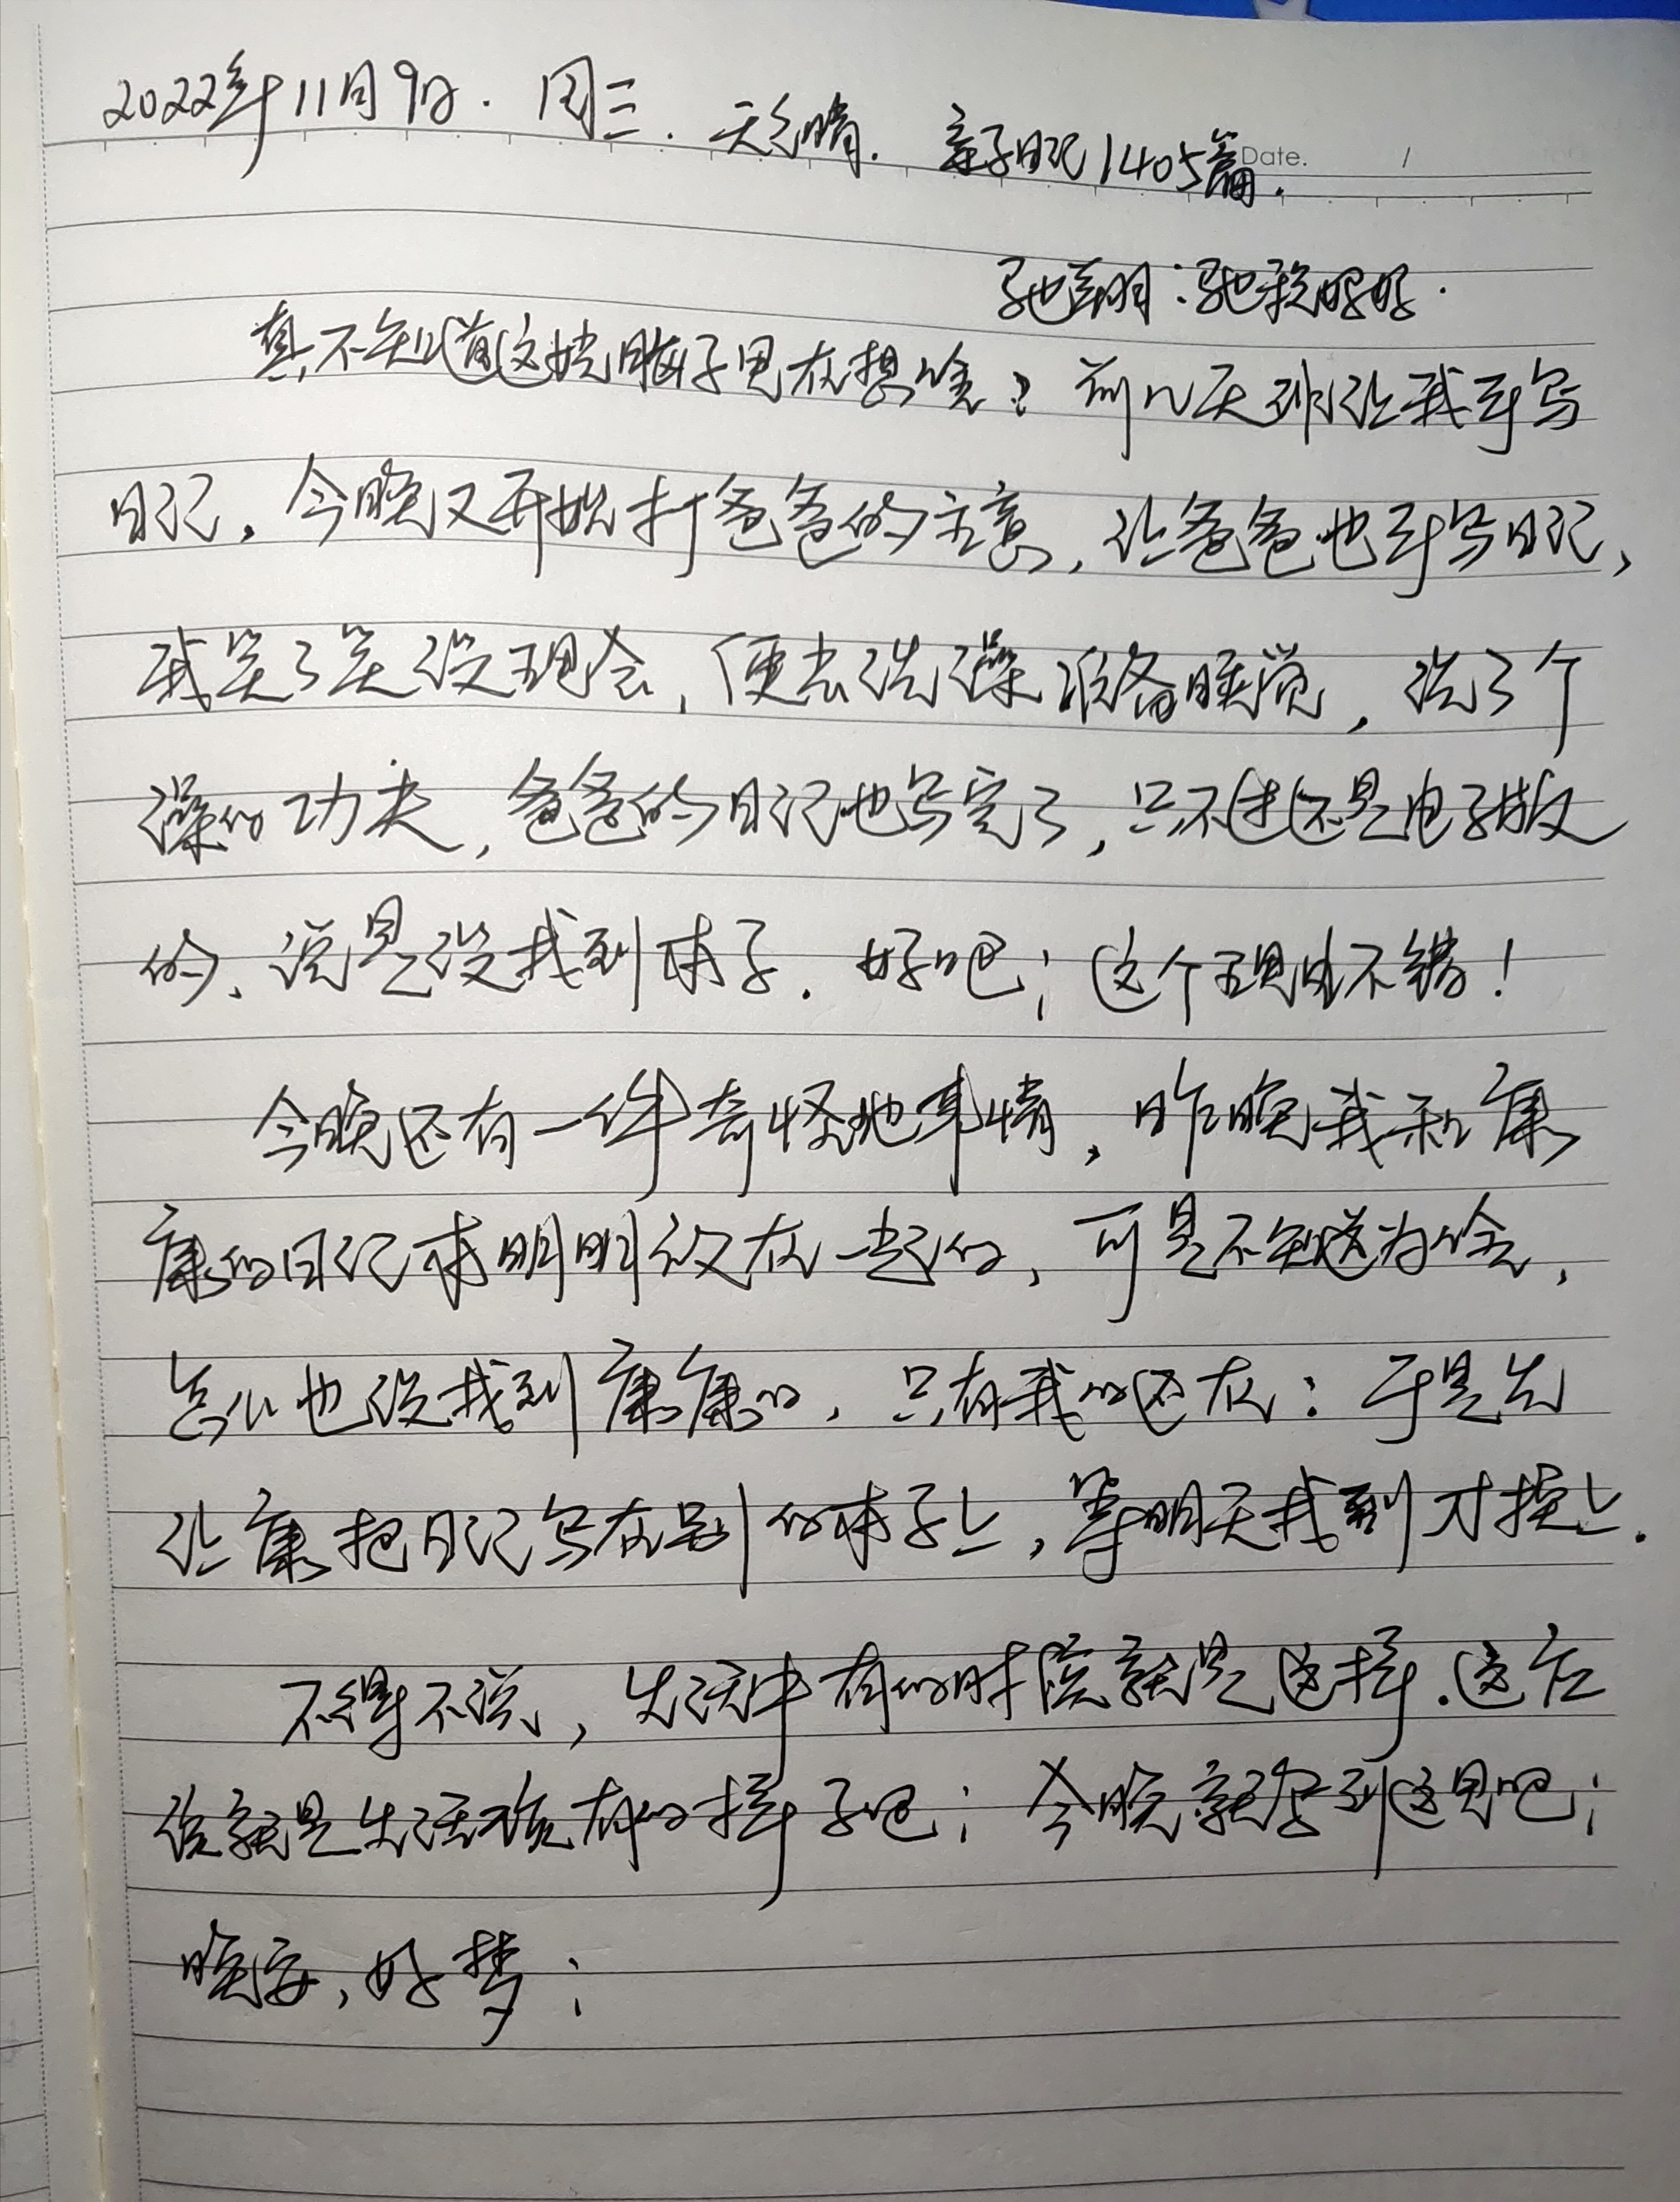 2022年11月9日. 周三. 天气晴. 亲子日记1405篇.
Date. /
驰翔:驰税明明.
真不知道这娃脑子里在想啥? 前几天刚让我手写
日记, 今晚又开始打爸爸的主意, 让爸爸也手写日记,
我笑了笑没理会, 便去洗澡准备睡觉, 洗了个
澡的功夫, 爸爸的日记也写完了, 只不过还是电子版
的、说是没找到本子. 好吧; 这个理由不错!
今晚还有一件奇怪地事情, 昨晚我和康
康的日记本明明放在一起的, 可是不知道为啥,
怎么也没找到康康的, 只有我的还在; 于是先
让康把日记写在别的本子上, 等明天找到才换上.
不得不说, 生活中有的时候就是这样. 这应
该就是生活该有的样子吧; 今晚就写到这里吧;
晚安, 好梦;